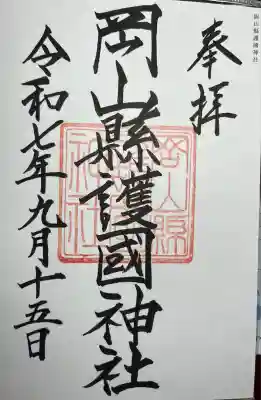 岡山縣護國神社
奉拝
岡山縣護國神社
令和七年九月十五日
岡山縣護國神社